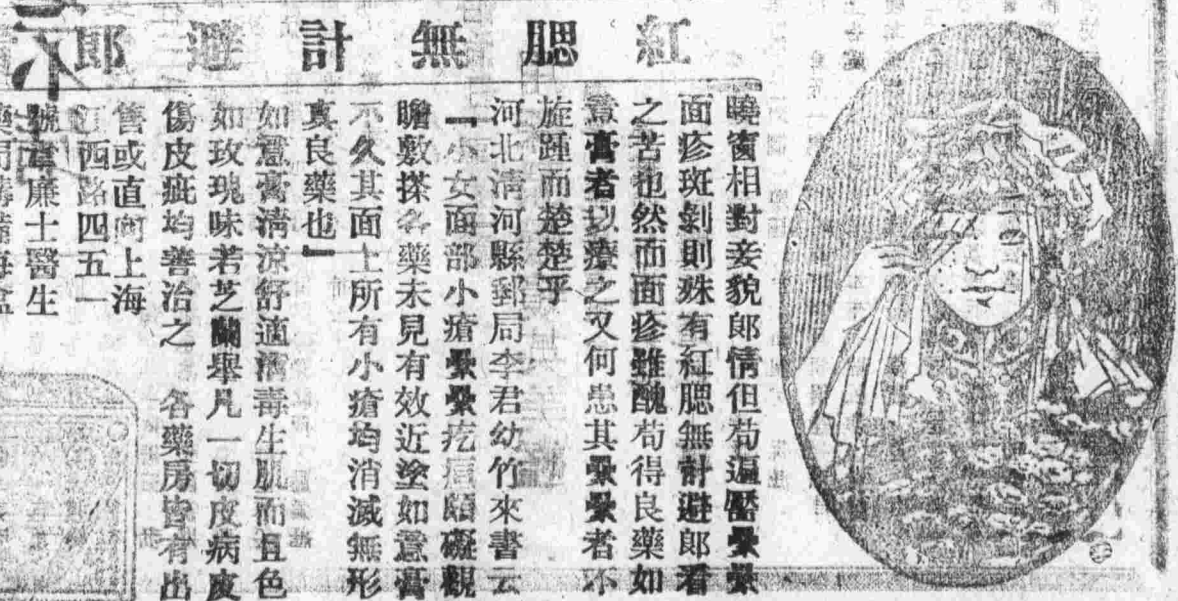 紅腮無計避郎
曉窗相對妾貌郎情但苟遍靨纍纍
面疹斑剝則殊有紅腮無計避郎看
之苦也然而面疹雖醜苟得良藥如
意膏者以療之又何患其纍纍者不
旋踵而楚楚乎
河北淸河縣郵局李君幼竹來書云
「小女面部小瘡纍纍疙疸頗礙觀
瞻敷搽各藥未見有效近塗如意膏
不久其面上所有小瘡均消滅無形
眞良藥也」
如意膏淸涼舒適消毒生肌而且色
如玫瑰味若芝蘭舉凡一切皮病皮
傷皮疵均善治之 各藥房皆有出
售或直向上海
江西路四五一
號韋廉士醫生
藥局